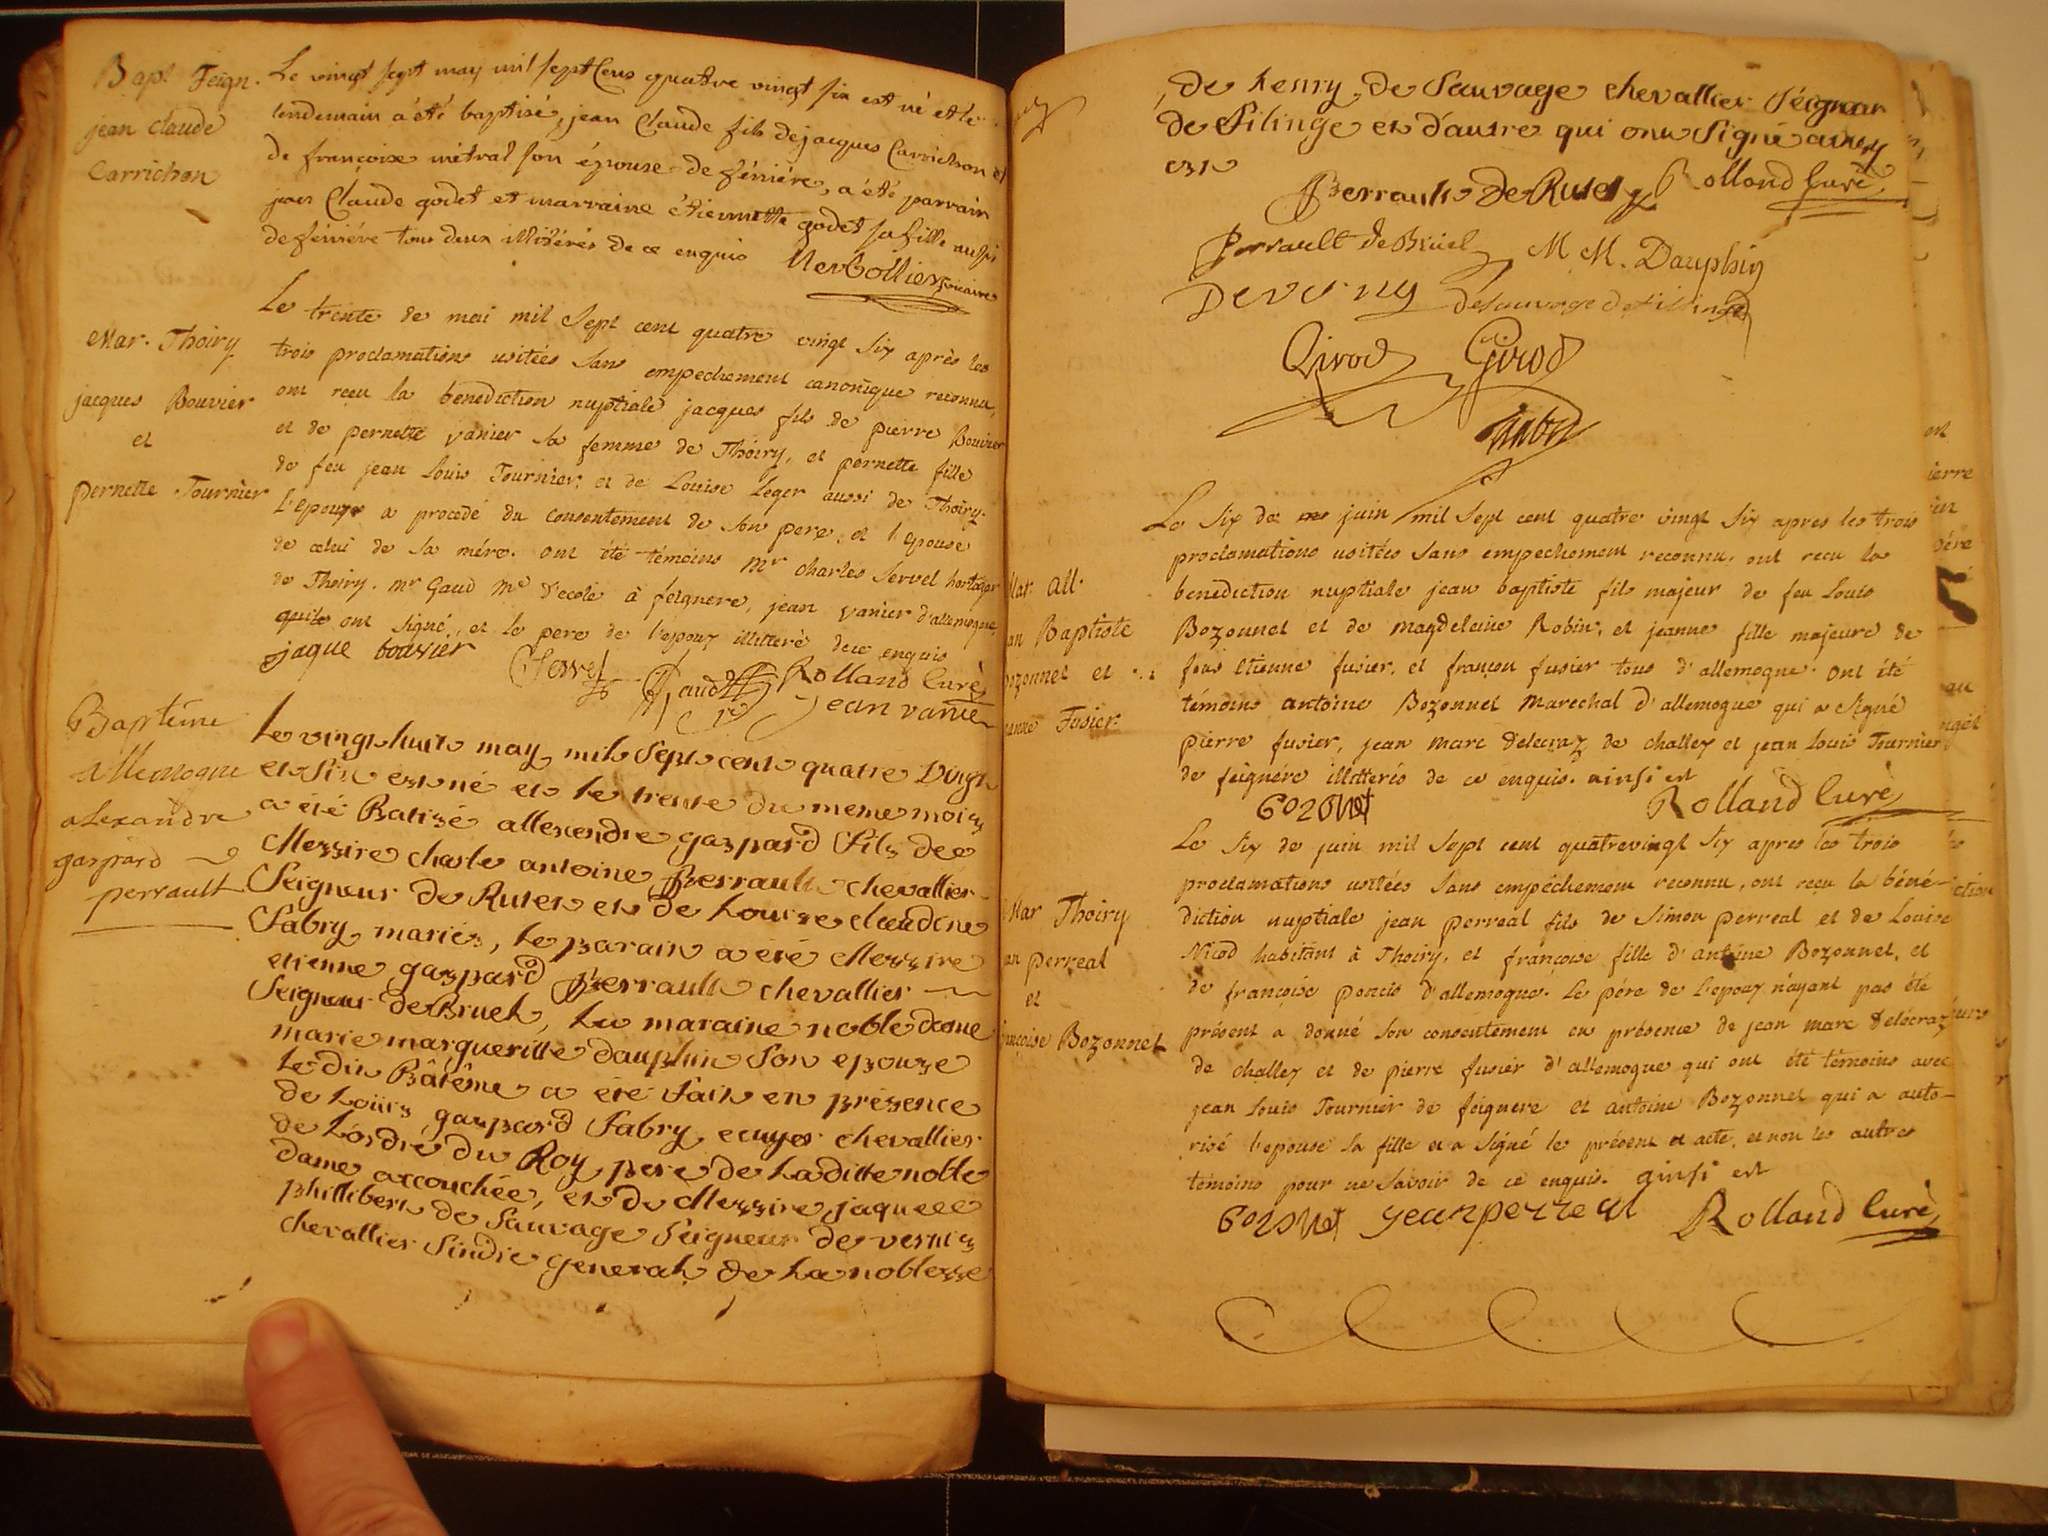 Bapt Feign.
jean claude
Carrichon
Le vingt sept may mil sept Cens quatre vingt six est né et le
lendemain a été baptisé, jean Claude fils de jacques Carrichon et
de françoise métral son épouse de féniére, a été parrain
jean Claude godet et marraine étiennette godet sa fille aussi
de féniére tous deux illitérés de ce enquis
Mar. Thoiry
jacques Bouvier
et
pernette Tournier
Le trente de mai mil sept cent quatre vingt six après les
trois proclamations usitées sans empechement canonique reconnu,
ont reçu la benediction nuptiale jacques fils de pierre Bouvier
et de pernette vanier sa femme de Thoiry, et pernette fille
de feu jean Louis Tournier, et de Louise Leger aussi de Thoiry.
L'epoux a procedé du consentement de son pere, et l'epouse
de celui de sa mére. ont été témoins Mr charles Servel
de Thoiry. mr Gaud Me d'ecole à feignere, jean vanier d'allemogne
qui ont signé, et le pere de l'epoux illitteré de ce enquis
jaque bouvier Servel Gaud Rolland Curé
jean vanier
Baptême
allemogne
alexandre
gaspard
perrault
Le vingt huit may mil sept cent quatre vingt
et six est né et le trente du meme mois
a été Batisé allexendre gaspard fils de
Messire charle antoine Perrault chevallier
Seigneur de Rutet et de Louise claudine
Fabry mariés, le parain a été Messire
etienne gaspard Perrault chevallier
Seigneur de Bruel, La maraine noble dame
marie margueritte dauphin son epouze
Le dit Bâtême a été fait en présence
de Loüis gaspard Fabry ecuyer chevallier
de L'ordre du Roy pere de La ditte noble
dame accouchée, et de Messire jaque
phillibert de Sauvage Seigneur de vernis
chevallier Sindic general de La noblesse
de henry de Sauvage chevallier Seignur
de Filinge et d'autre qui ont signé ainsy
est
Perrault De Rutet Rolland Curé
Perrault de Bruel M M. Dauphin
De verny de Sauvage de fillinge
Girod Girod
Mar. All.
Baptiste
Bozonnet et
Fusier
Le six de juin mil sept cent quatre vingt six apres les trois
proclamations usitées sans empechement reconnu, ont recu la
benediction nuptiale jean baptiste fils majeur de feu Louis
Bozonnet et de magdeleine Robin, et jeanne fille majeure de
feus etienne fusier, et françon fusier tous d'allemogne. ont été
témoins antoine Bozonnet marechal d'allemogne qui a signé
pierre fusier, jean marc delecraz de challex et jean Louis Tournier
de feignére illitterés de ce enquis. ainsi est
bozonet Rolland Curé
Mar Thoiry
perreal
et
Bozonnet
Le six de juin mil sept cent quatrevingt six apres les trois
proclamations usitées sans empéchement reconnu, ont reçu la béné-
diction nuptiale jean perreal fils de simon perreal et de Louise
Nicod habitant à Thoiry, et françoise fille d'antoine Bozonnet, et
de françoise poncis d'allemogne. Le pére de l'epoux n'ayant pas été
présent a donné son consentement en présence de jean marc delécraz
de challex et de pierre fusier d'allemogne qui ont été témoins avec
jean Louis Tournier de feignere et antoine Bozonnet qui a auto-
risé l'epouse sa fille et a signé le présent et acte, et non les autres
témoins pour ne savoir de ce enquis. ainsi est
bozonet jean perreal Rolland Curé